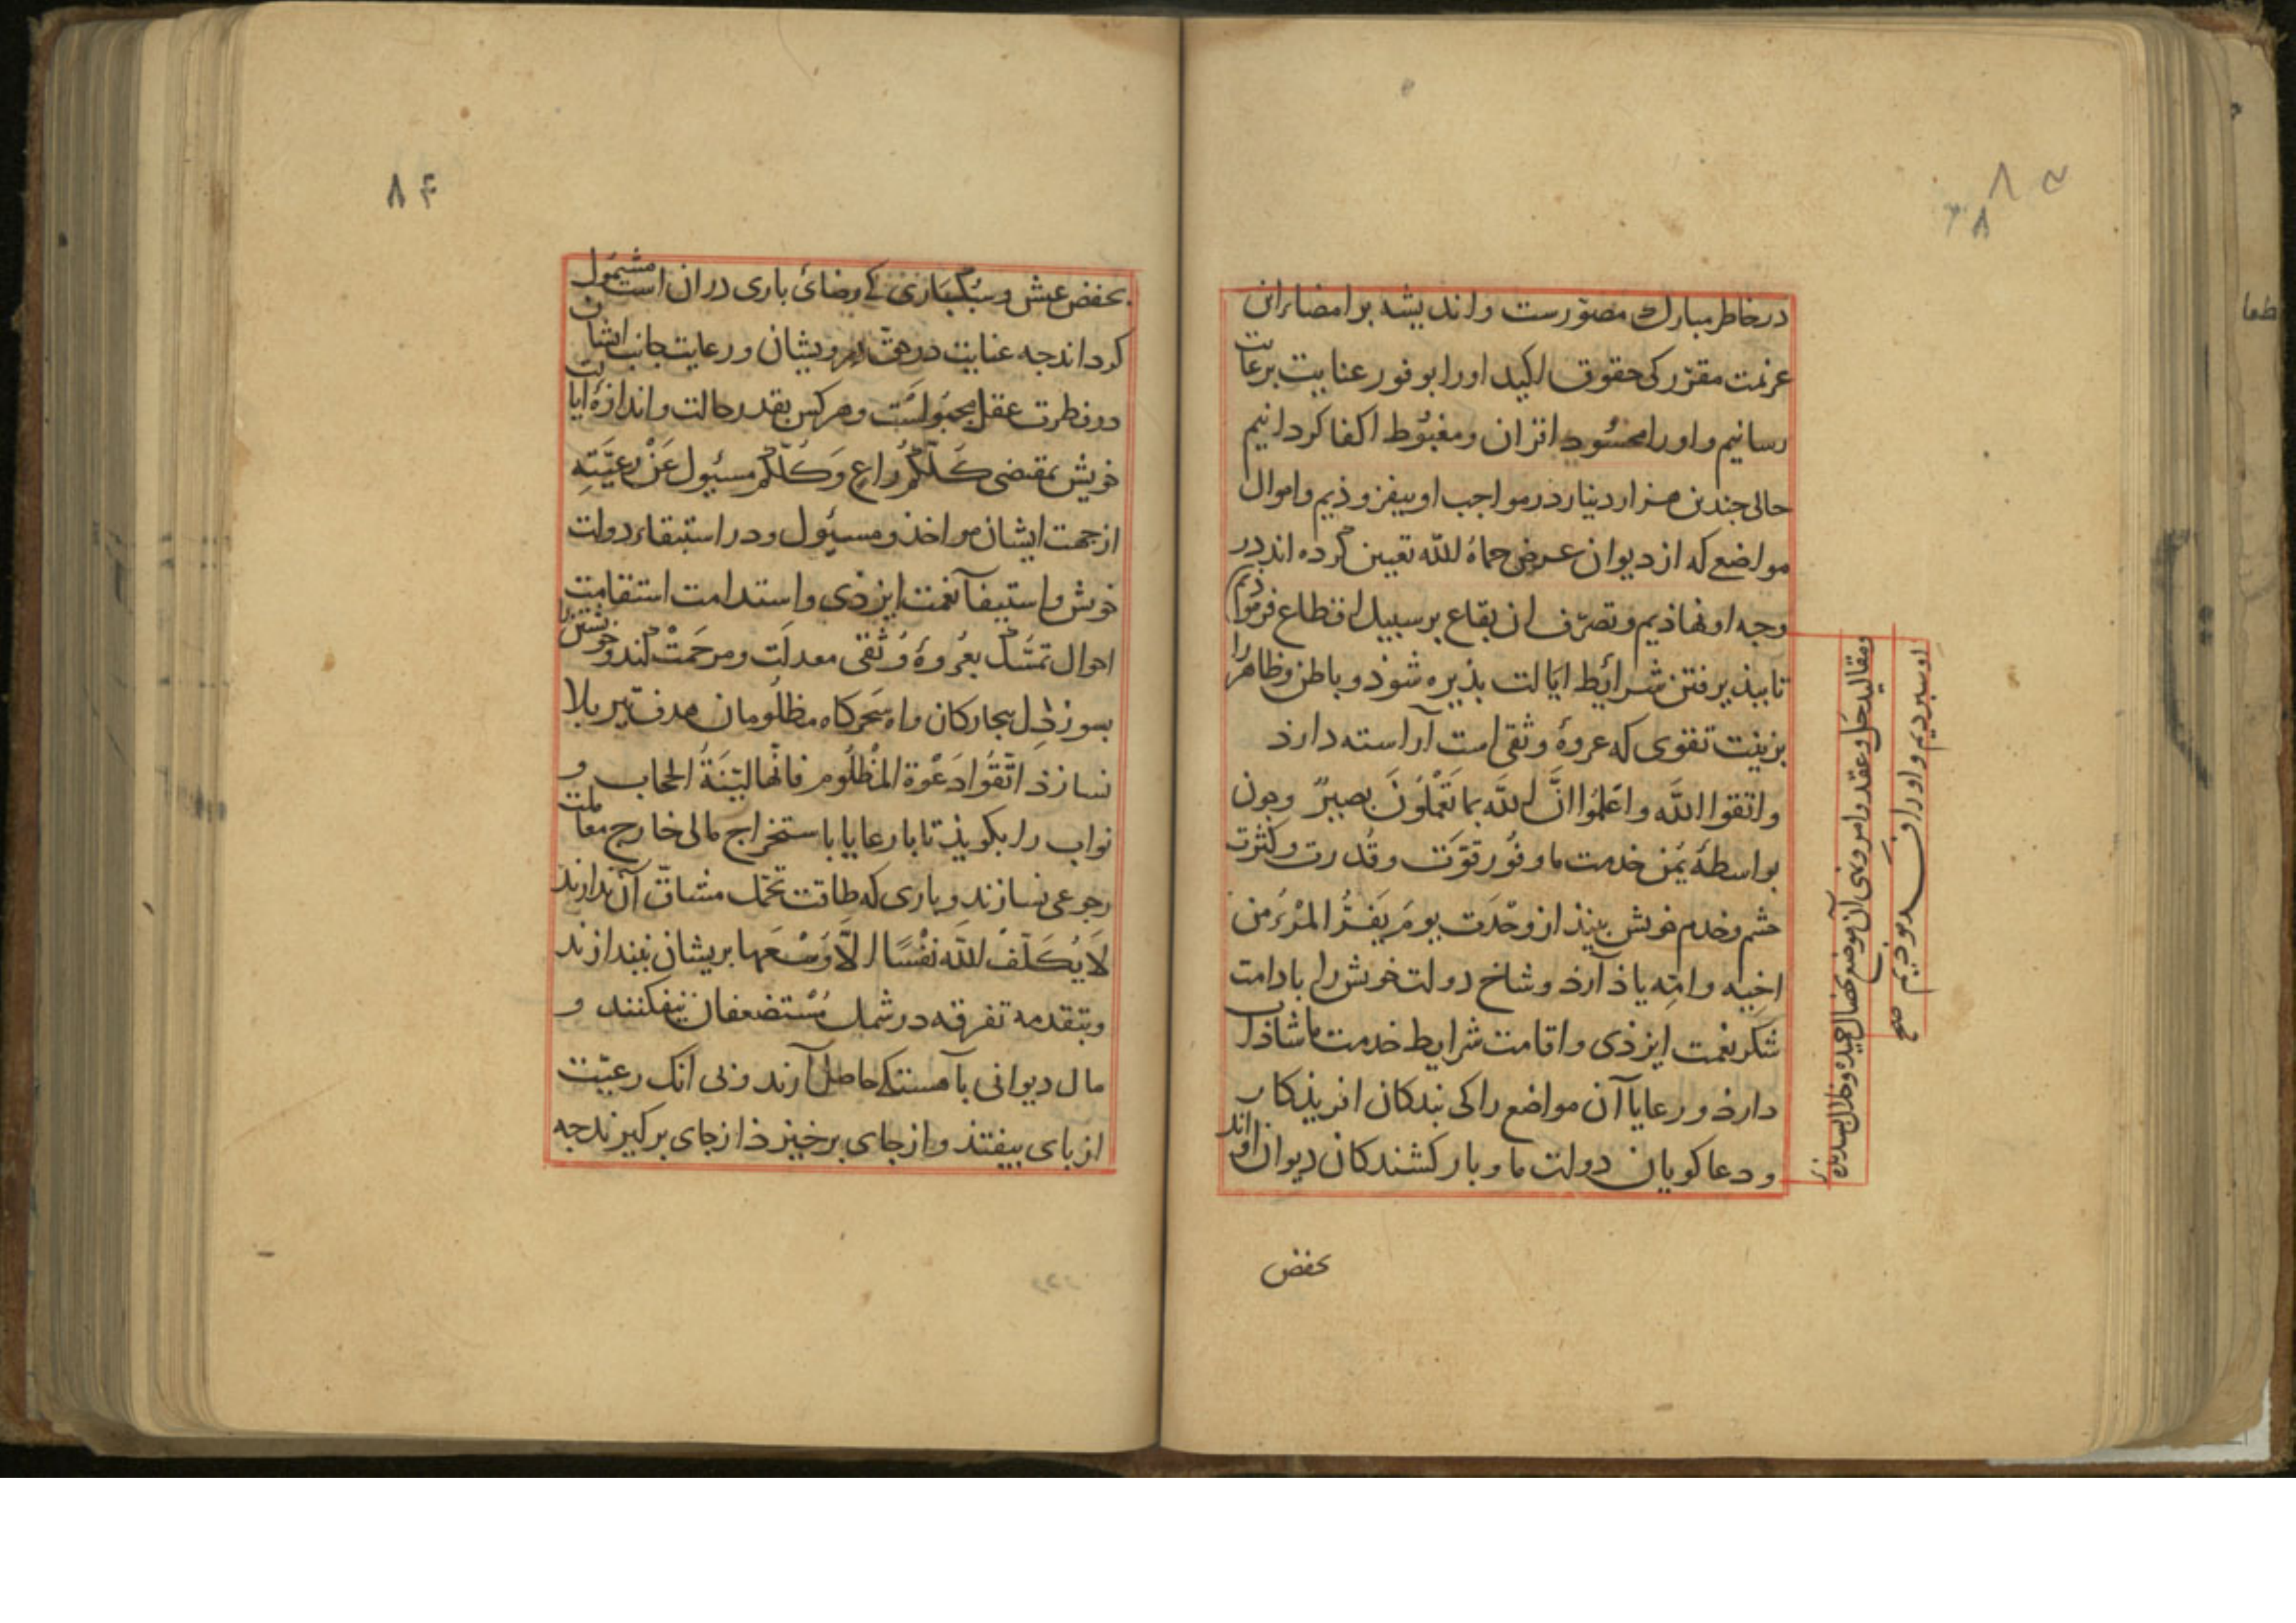 در خاطر مبارک مصوّرست و اندیشه بر امضاء این
عزیمت مقرّر کی حقوق اکید او را بوفور عنایت برعایت
رسانیم و او را محسود اقران و مغبُوط اکفا کردانیم
حالی جندین هزار دینار در مواجب او بیفزوذیم و اموال
مواضع که از دیوان عرض حماهُ الله تعیین کرده اند در
وجه او نهاذیم و تصرّف ان بقاع بر سبیل اقطاع فرموذیم
تا بپذیرفتن شرائط ایالت بذیره شوذ و باطن و ظاهر را
بزینت تقوی که عروهٔ وثقی است آراسته دارذ
واتقوا اللَّه واعلمُوا انَّ اللَّه بما تَعْمَلُونَ بصیرٌ وجون
بواسطهٔ یُمن خدمت ما وفُور قوّت و قُدرت و کثرت
حشم و خدم خویش بینذ از وحْدَت یومَ یَفِرُّ المرْءُ من
اخیه و امّه یاذ آرذ و شاخ دولت خویش را بادامت
شکر نعمت ایزذی و اقامت شرایط خدمت ما شاذاب
دارذ و رعایا آن مواضع را کی بندکان افریذکار
و دعا کویان دولت ما و بار کشندکان دیوان اواند
و مقالید حل و عقد و امر و نهی آن موضع بخصال حمیده و خلال پسندیدهٔ
او سبردیم و او را
صح
بخفض
۸۴
بخفض عیش و سُبکباری کی رضائ باری در ان است مشمول
کرداند جه عنایت در حق درویشان و رعایت جانب ایشان
در فطرت عقل مجبُولَست و هر کس بقدر حالت و اندازهٔ ایالت
خویش بمقتضی کُلّکُمْ راعٍ وَکُلّکُمْ مسئول عَنْ رعیَّتِهِ
از جهت ایشان مواخذ و مسئول و در استبقاء دولت
خویش و استیفآ نعمت ایزذی و استدامت استقامت
احوال تمسّک بعُروهٔ وُثقی معدلَت و مرحَمَتْ کند و خویشتن را
بسوز دِل بیجارکان و اه سَحَرکاه مظلُومان هدف تیر بلا
نسازذ اتّقُوا دَعْوة المظْلُوم فانّها لیّنَةُ الحجاب و
نواب را بکویذ تا با رعایا باستخراج مالی خارج معاملت
رجوعی نسازند و باری که طاقت تحمّل مشاقّ آن ندارند
لاَ یُکَلِّفُ اللَّه نَفْسًا الَّا وُسْعَها بریشان نیندازند
و بتقدمه تفرقه در شمل مُسْتضعفان نیفکنند و
مال دیوانی بآهستکی حاصل آرند و بی انک رعیّت
از بای بیفتذ و از جای برخیزذ از جای برکیرند جه